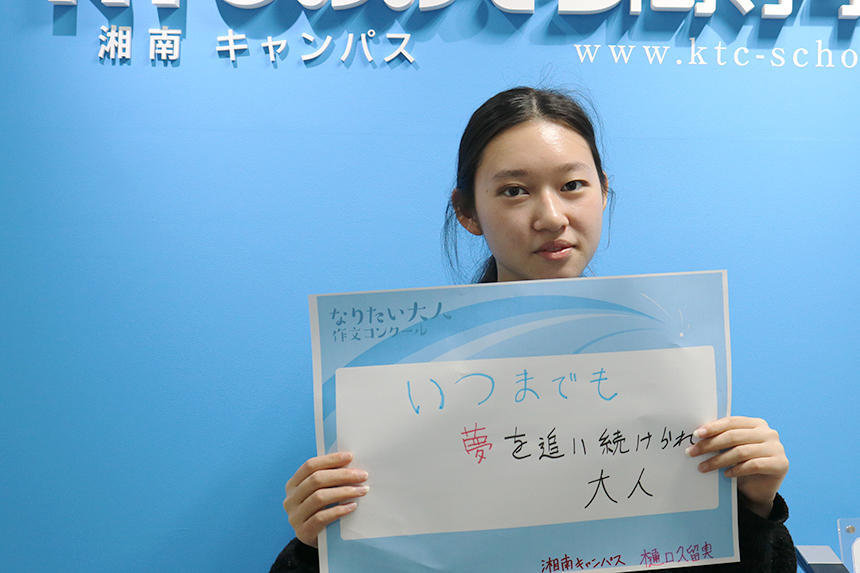 湘南 キャンパス
www.ktc-scho
なりたい大人
作文コンクール
いつまでも
夢を追い続けられ
大人
湘南キャンパス 樋口久留実